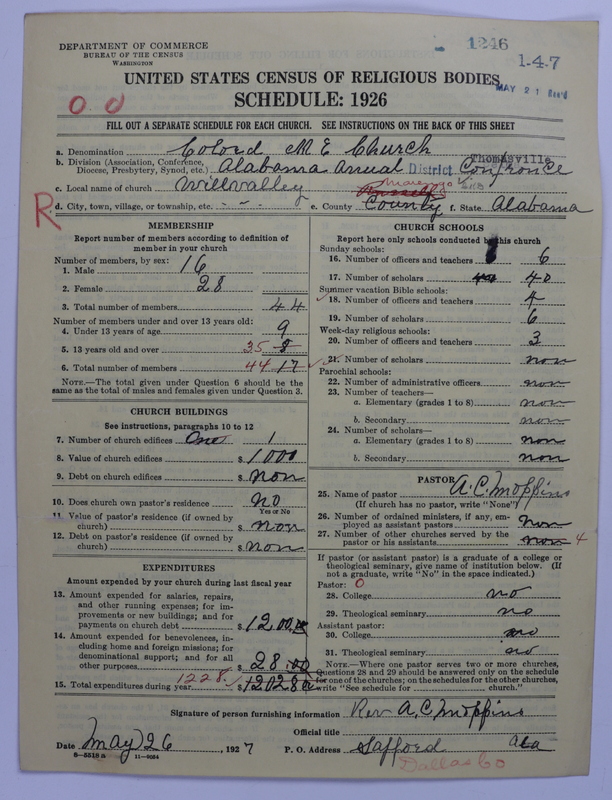 DEPARTMENT OF COMMERCE
BUREAU OF THE CENSUS
WASHINGTON
1246
1-4-7
MAY 21
UNITED STATES CENSUS OF RELIGIOUS BODIES
SCHEDULE: 1926
0 0
FILL OUT A SEPARATE SCHEDULE FOR EACH CHURCH. SEE INSTRUCTIONS ON THE BACK OF THIS SHEET
a. Denomination Colord M E Church
b. Division (Association, Conference, Diocese, Presbytery, Synod, etc.) Alabama Anual District Confrence
Thomasville
c. Local name of church Willvalley
Marengo
R
d. City, town, village, or township, etc. - - - e. County County f. State Alabama
MEMBERSHIP
Report number of members according to definition of member in your church
Number of members, by sex:
1. Male 16
2. Female 28
3. Total number of members 44
Number of members under and over 13 years old:
4. Under 13 years of age 9
5. 13 years old and over 35 8
6. Total number of members 44 17
NOTE.—The total given under Question 6 should be the same as the total of males and females given under Question 3.
CHURCH BUILDINGS
See instructions, paragraphs 10 to 12
7. Number of church edifices One 1
8. Value of church edifices $ 1000
9. Debt on church edifices $ non
10. Does church own pastor's residence no
Yes or No
11. Value of pastor's residence (if owned by church) $ non
12. Debt on pastor's residence (if owned by church) $ non
EXPENDITURES
Amount expended by your church during last fiscal year
13. Amount expended for salaries, repairs, and other running expenses; for improvements or new buildings; and for payments on church debt $ 1200.00
14. Amount expended for benevolences, including home and foreign missions; for denominational support; and for all other purposes $ 28.00
15. Total expenditures during year 1228. $ 12028
CHURCH SCHOOLS
Report here only schools conducted by this church
Sunday schools:
16. Number of officers and teachers 6
17. Number of scholars 40 40
Summer vacation Bible schools:
18. Number of officers and teachers 4
19. Number of scholars 6
Week-day religious schools:
20. Number of officers and teachers 3
21. Number of scholars non
Parochial schools:
22. Number of administrative officers non
23. Number of teachers—
a. Elementary (grades 1 to 8) non
b. Secondary non
24. Number of scholars—
a. Elementary (grades 1 to 8) non
b. Secondary non
PASTOR
25. Name of pastor A. C. Moppins
(If church has no pastor, write "None")
26. Number of ordained ministers, if any, employed as assistant pastors non
27. Number of other churches served by the pastor or his assistants non 4
If pastor (or assistant pastor) is a graduate of a college or theological seminary, give name of institution below. (If not a graduate, write "No" in the space indicated.)
Pastor: 0
28. College no
29. Theological seminary no
Assistant pastor:
30. College no
31. Theological seminary no
NOTE.—Where one pastor serves two or more churches, Questions 28 and 29 should be answered only on the schedule for one of the churches; on the schedules for the other churches, write "See schedule for ........ church."
Signature of person furnishing information Rev A. C Moppins
Official title
Date May 26, 1927 P. O. Address Safford Ala
8-5518a 11-9064
Dallas Co